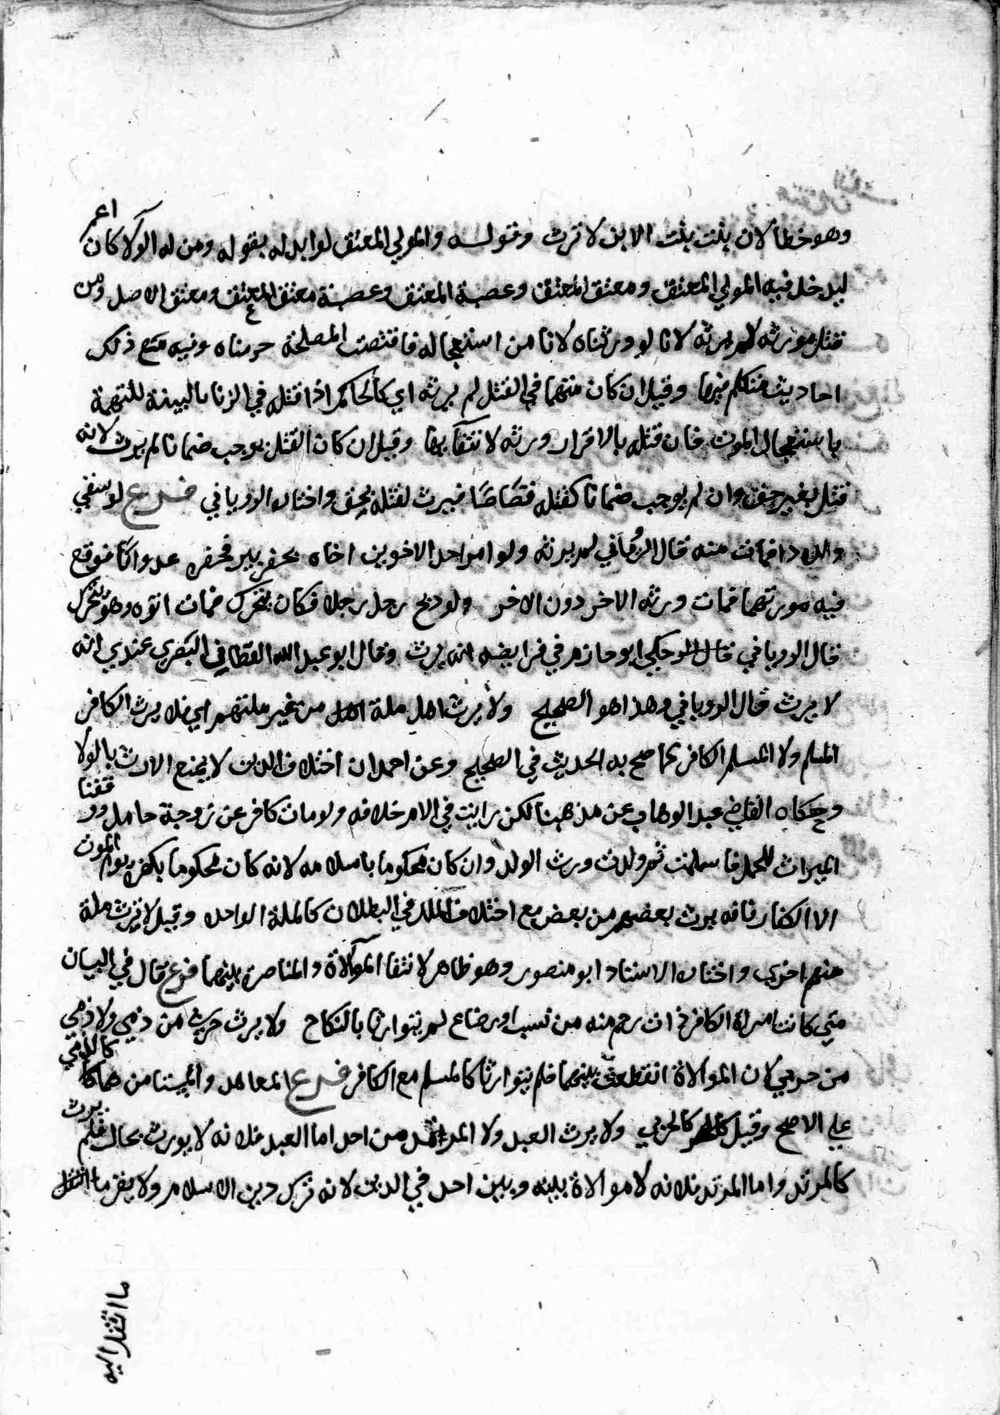 وهو خطأ لان بنت بنت الابن لا ترث وقوله والمولي المعتق لو ابدله بقوله ومن له الولا كان اعم
ليدخل فيه المولي المعتق ومعتق المعتق وعصبة المعتق وعصبة معتق المعتق ومعتق الاصل ومن
قتل مورثه لم يرثه لانا لو ورثناه لانا من استعجاله فاقتضت المصلحة حرمناه وفيه مع ذلك
احاديث متكلم فيها وقيل ان كان متهما في القتل لم يرثه اي كالحاكم اذا قتله في الزنا بالبينة للتهمة
باستعجال الموت فان قتله بالاقرار ورثه لانتفائها وقيل ان كان القتل يوجب ضمانا لم يرث لانه
قتل بغير حق وان لم يوجب ضمانا كقتله قصاصا فيرث لقتله بحق واختاره الروياني فرع لو سقي
والده دوا فمات منه قال الروياني لم يرثه ولو امر احد الاخوين اخاه بحفر بير فحفره عدوانا فوقع
فيه مورثهما فمات ورثه الاخر دون الاخر ولو ذبح رجل رجلا فكان يتحرك فمات ابوه وهو يتحرك
قال الروياني قال الموحلي ابو حازم في فرايضه انه يرث وقال ابو عبد الله القطان البصري عندي انه
لا يرث قال الروياني وهذا هو الصحيح ولا يرث اهل ملة من غير ملتهم اي فلا يرث الكافر
المسلم ولا المسلم الكافر كما صح به الحديث في الصحيح وعن احمد ان اختلاف الدين لا يمنع الارث بالولا
وحكاه القاضي عبد الوهاب عن مذهبنا لكن رايت في الام خلافه ولو مات كافر عن زوجة حامل ووقفنا
الميراث للحمل فاسلمت ثم ولدت ورث الولد وان كان محكوما باسلامه لانه كان محكوما بكفره يوم الموت
الا الكفار فانه يرث بعضهم من بعض مع اختلاف الملل في البطلان كالملة الواحدة وقيل لا ترث ملة
منهم اخري واختاره الاستاد ابو منصور وهو ظاهر لانتفا الموالاة والمناصرة بينهما فرع قال في البيان
متي كانت امراة الكافر ذات رحم منه من نسب او رضاع لم يتوارثا بالنكاح ولا يرث حربي من ذمي ولا ذمي
من حربي لان الموالاة انقطعت بينهما فلم يتوارثا كالمسلم مع الكافر فرع المعاهد والمستامن هما كالذمي
علي الاصح وقيل كالحربي ولا يرث العبد ولا المرتد من احد اما العبد فلانه لا يورث بحال فلم يرث
كالمرتد واما المرتد فلانه لا موالاة بينه وبين احد في الدين لانه ترك دين الاسلام ولا يقر ما انتقل
ما انتقل اليه